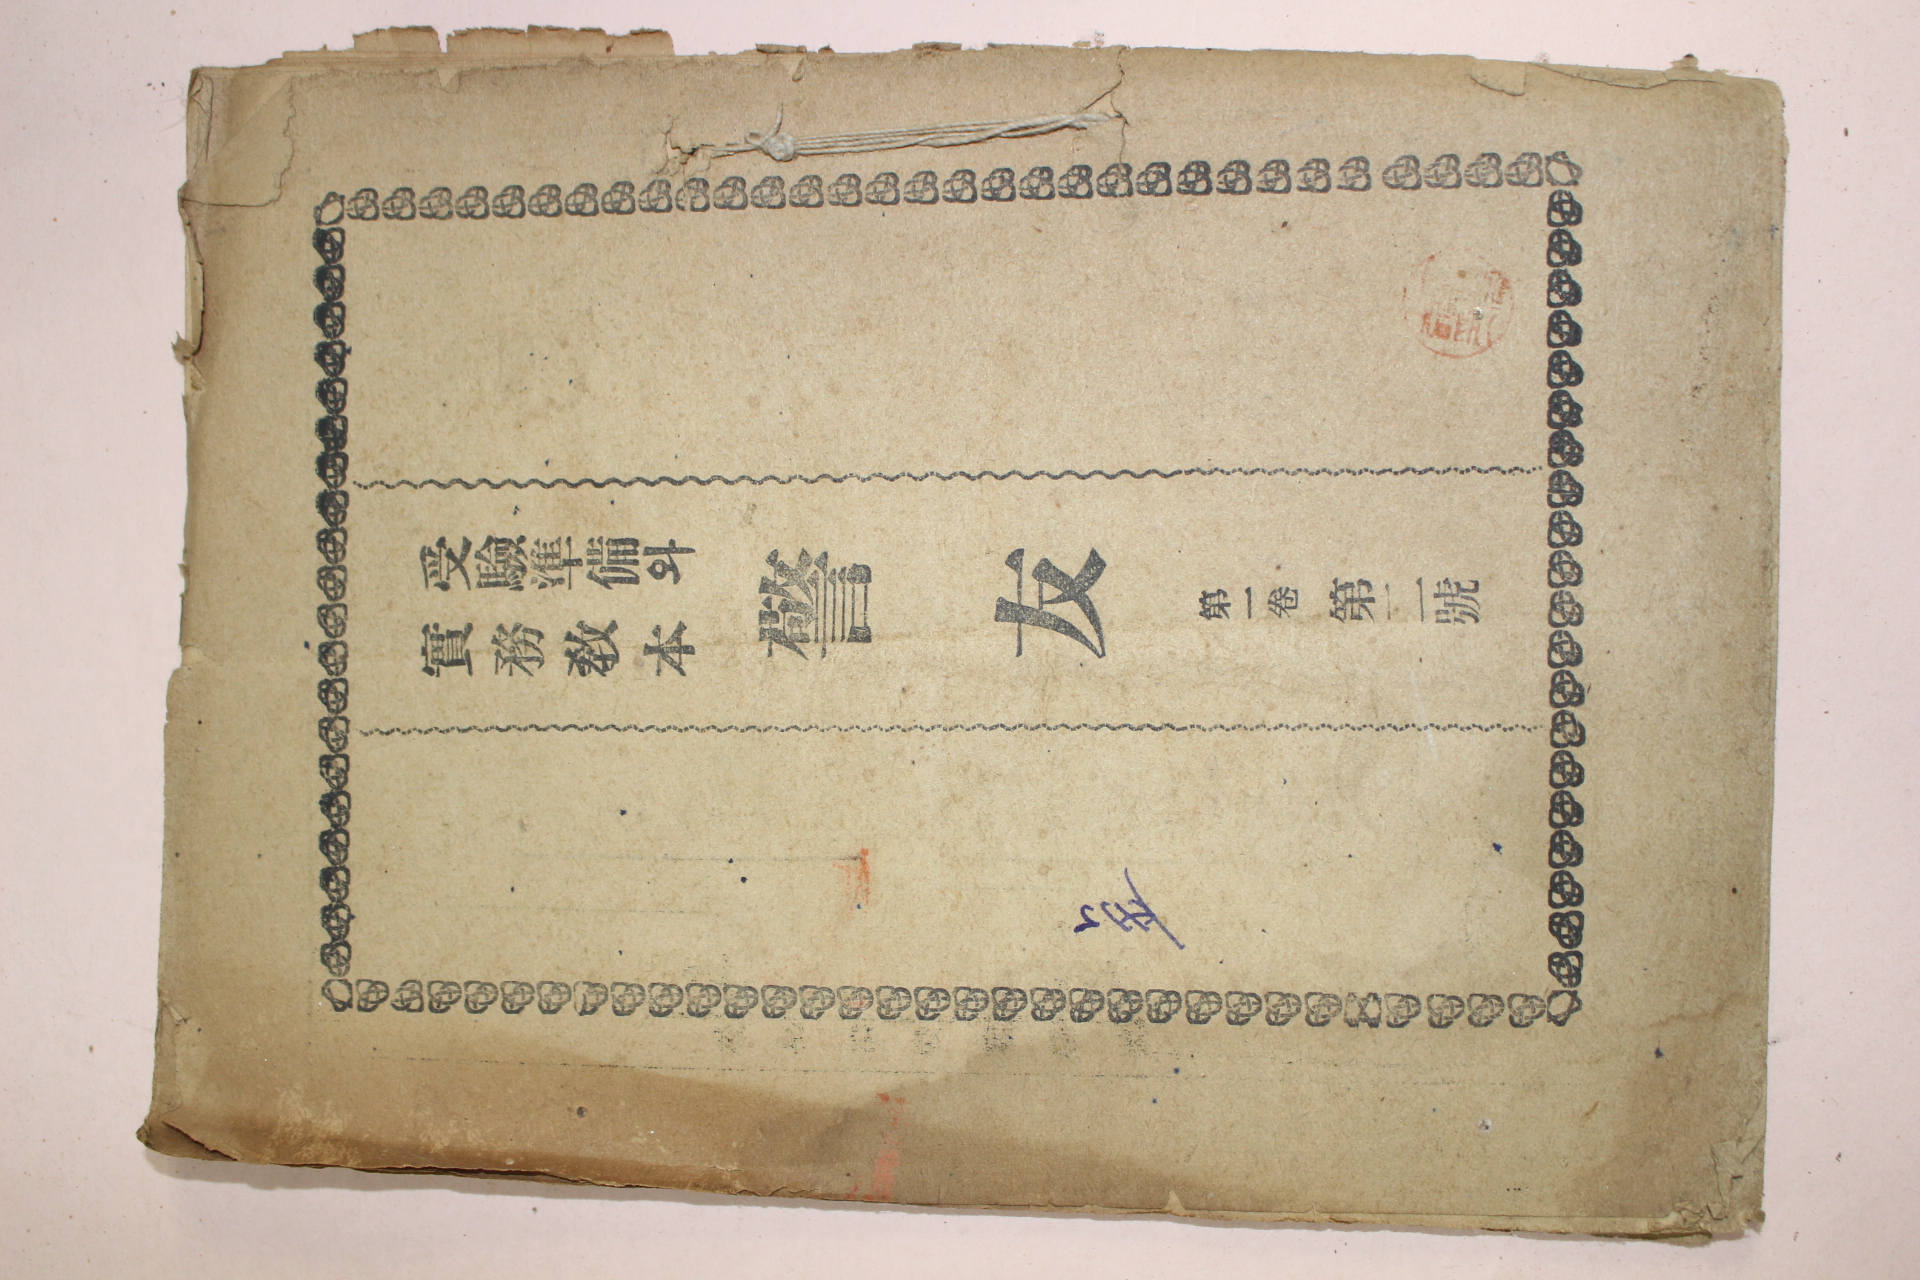 受驗準備와
實務敎本
警友
第一卷 第二號